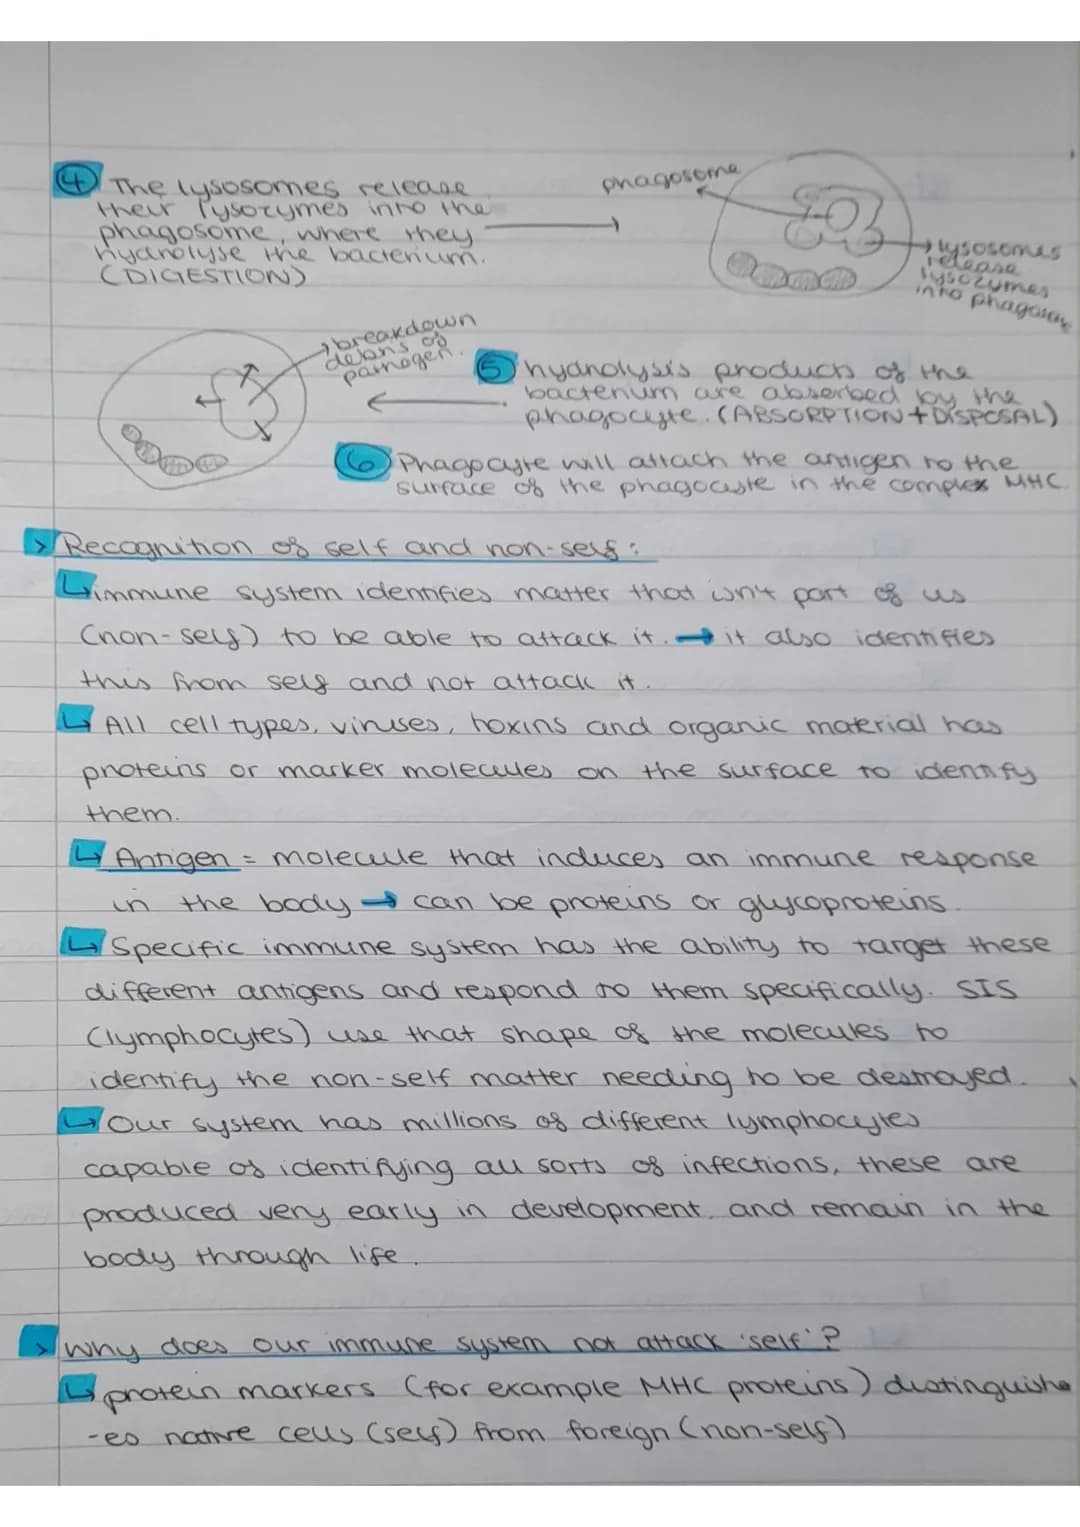 4 The lysosomes release
their lysozymes into the
phagosome, where they
hydrolyse the bacterium.
(DIGESTION)
phagosome
lysosomes
release
lysozymes
into phagosome
breakdown
debris of
pathogen.
5 hydrolysis products of the
bacterium are absorbed by the
phagocyte. (ABSORPTION + DISPOSAL)
6 Phagocyte will attach the antigen to the
surface of the phagocyte in the complex MHC.
> Recognition of self and non-self:
↳ immune system identifies matter that isn't part of us
(non-self) to be able to attack it. → it also identifies
this from self and not attack it.
↳ All cell types, viruses, toxins and organic material has
proteins or marker molecules on the surface to identify
them.
↳ Antigen = molecule that induces an immune response
in the body → can be proteins or glycoproteins.
↳ Specific immune system has the ability to target these
different antigens and respond to them specifically. SIS
(lymphocytes) use that shape of the molecules to
identify the non-self matter needing to be destroyed.
↳ Our system has millions of different lymphocytes
capable of identifying all sorts of infections, these are
produced very early in development. and remain in the
body through life.
> Why does our immune system not attack 'self'?
↳ protein markers (for example MHC proteins) distinguish
-es native cells (self) from foreign (non-self)